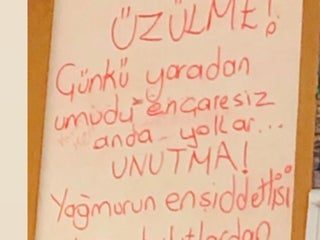 ÜZÜLME!
Günkü yaradan
umudu ençaresiz
anda yollar...
UNUTMA!
Yağmurun enşiddetlisi